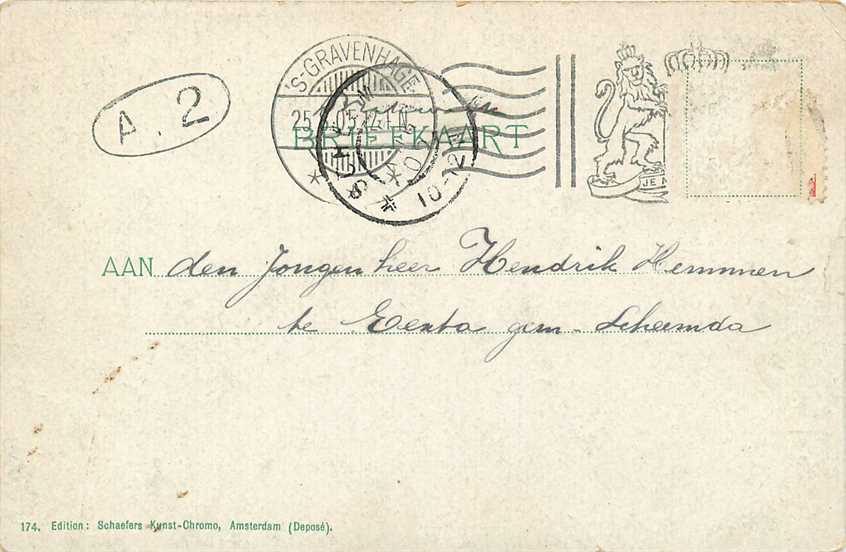 'S-GRAVENHAGE
A. 2
25 05 12-1 N
BRIEFKAART
10-12
JE M
AAN den Jongen heer Hendrik Hemmen
te Eexta gem. Scheemda
174. Edition: Schaefers Kunst-Chromo, Amsterdam (Deposé).